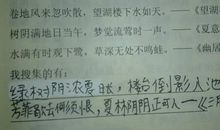 卷地风来忽吹散，望湖楼下水如天。——《望湖
树阴满地日当午，梦觉流莺时一声。——《夏意
水满有时观下鹭，草深无处不鸣蛙。——《幽居
我搜集的有：
绿树阴浓夏日长，楼台倒影入池
芳菲歇去何须恨，夏木阴阴正可人——《三